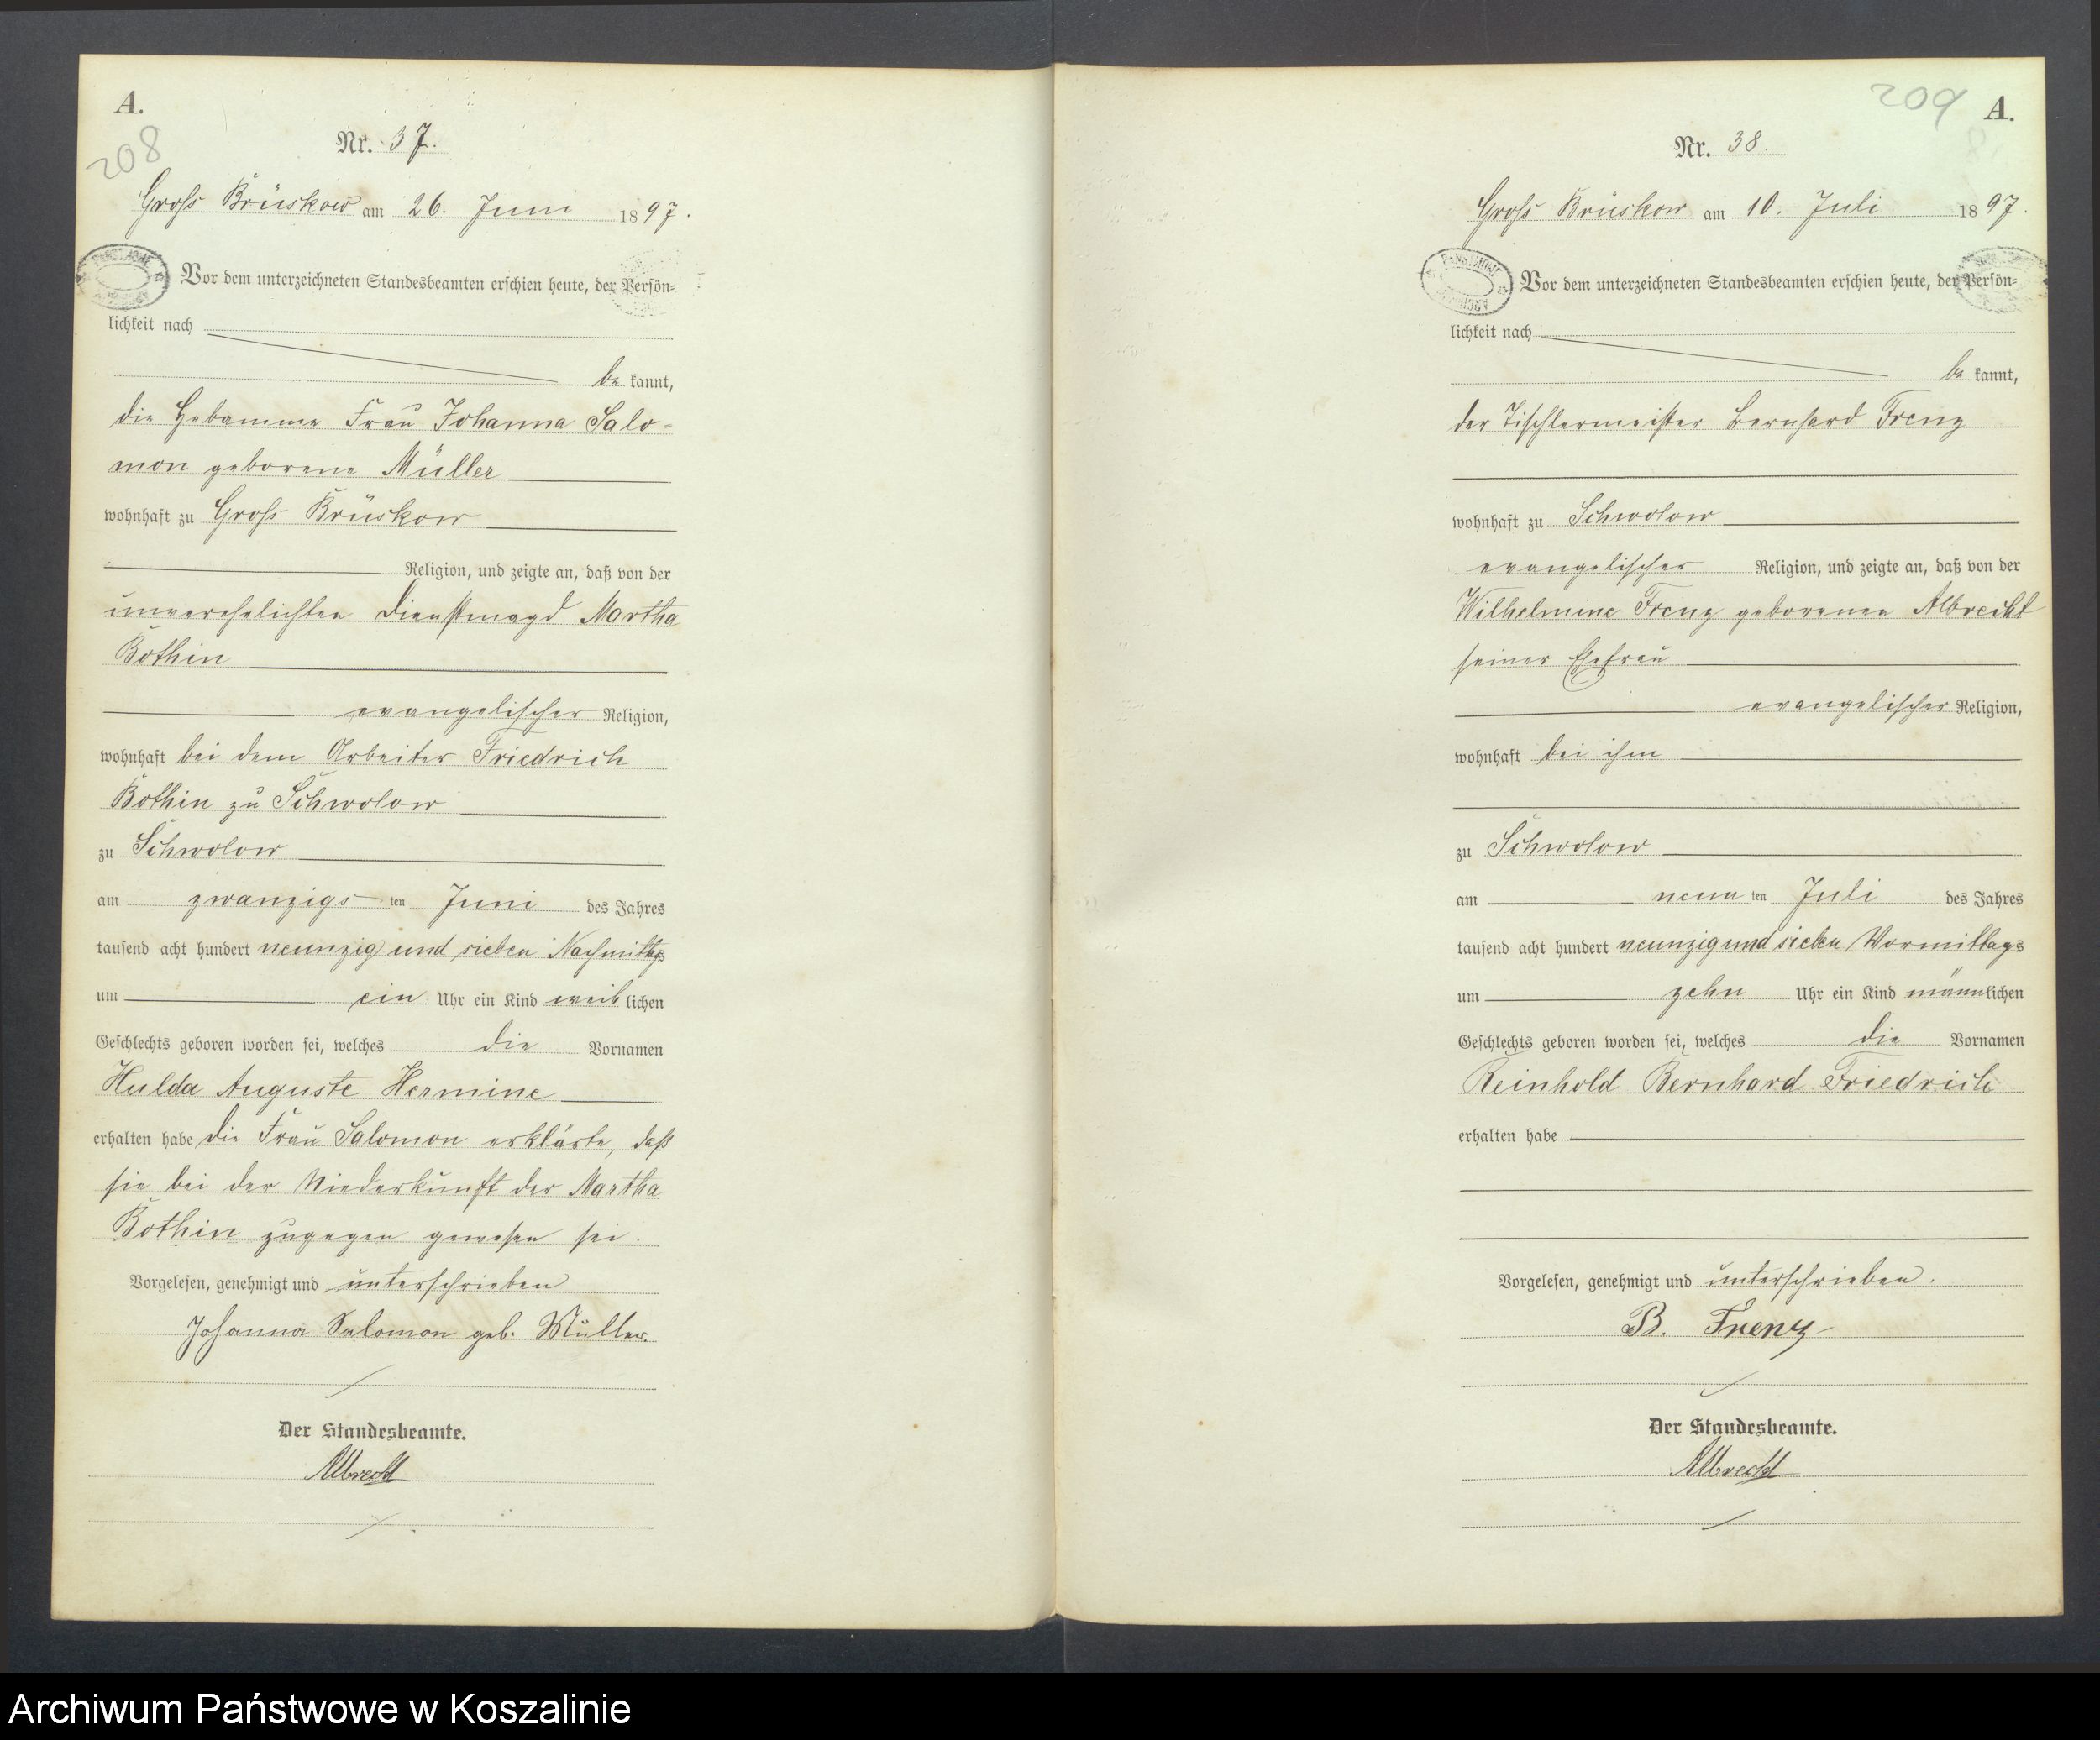 A.
208
Nr. 37.
Gross Brüskow am 26. Juni 1897.
Vor dem unterzeichneten Standesbeamten erschien heute, der Persön-
lichkeit nach
be kannt,
die Hebamme Frau Johanna Salo-
mon geborene Müller
wohnhaft zu Gross Brüskow
Religion, und zeigte an, daß von der
unverehelichten Dienstmagd Martha
Bothin
evangelischer Religion,
wohnhaft bei dem Arbeiter Friedrich
Bothin zu Schwolow
zu Schwolow
am zwanzigs ten Juni des Jahres
tausend acht hundert neunzig und sieben Nachmittags
um ein Uhr ein Kind weib lichen
Geschlechts geboren worden sei, welches die Vornamen
Hulda Auguste Hermine
erhalten habe die Frau Salomon erklärte, daß
sie bei der Niederkunft der Martha
Bothin zugegen gewesen sei.
Vorgelesen, genehmigt und unterschrieben
Johanna Salomon geb. Müller.
Der Standesbeamte.
Albrecht
209
A.
Nr. 38.
Gross Brüskow am 10. Juli 1897.
Vor dem unterzeichneten Standesbeamten erschien heute, der Persön-
lichkeit nach
be kannt,
der Tischlermeister Bernhard Frenz
wohnhaft zu Schwolow
evangelischer Religion, und zeigte an, daß von der
Wilhelmine Frenz geborenen Albrecht
seiner Ehefrau
evangelischer Religion,
wohnhaft bei ihm
zu Schwolow
am neun ten Juli des Jahres
tausend acht hundert neunzig und sieben Vormittags
um zehn Uhr ein Kind männlichen
Geschlechts geboren worden sei, welches die Vornamen
Reinhold Bernhard Friedrich
erhalten habe
Vorgelesen, genehmigt und unterschrieben.
B. Frenz
Der Standesbeamte.
Albrecht
Archiwum Państwowe w Koszalinie